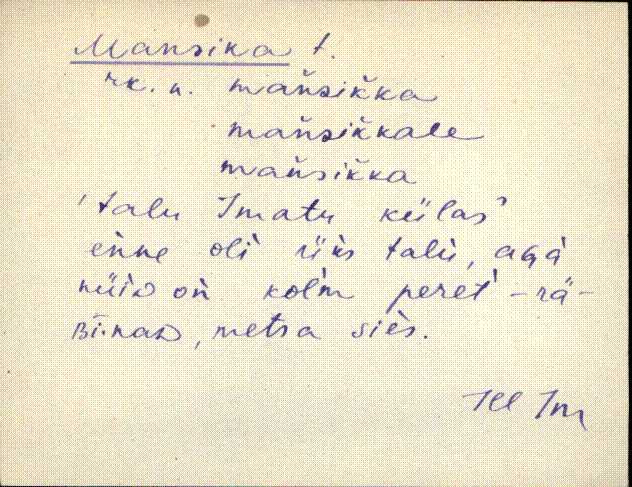 Mansika t.
rk. n. mańsikka
mańsikkalle
mańsikka
'talu Imatu külas'
enne oli üks talu, aga
nüiD on kolm peret -rä-
Bi·naD, metsa sies.
Jll Im